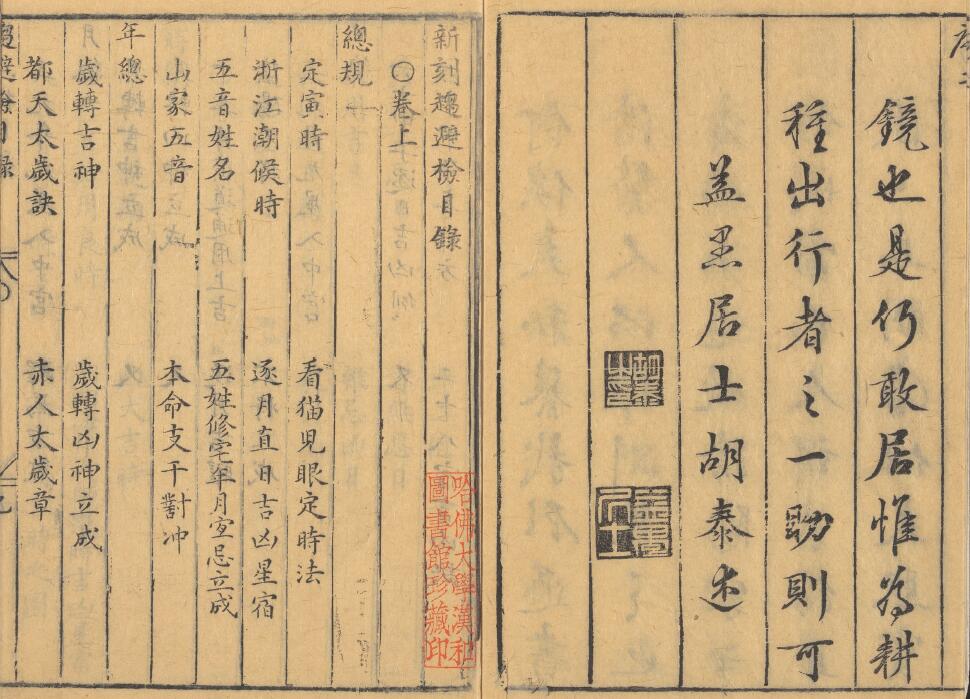 鏡也是仍敢居惟為耕
種出行者之一助則可
益黑居士胡泰述
新刻趨避檢目錄
○卷上
總規
定寅時 看猫児眼定時法
浙江潮候時 逐月直日吉凶星宿
五音姓名 五姓修宅年月宜忌立成
山家五音 本命支干對冲
年總
月歲轉吉神 歲轉凶神立成
都天太歲訣 赤人太歲章
哈佛大學漢和
圖書館珍藏印